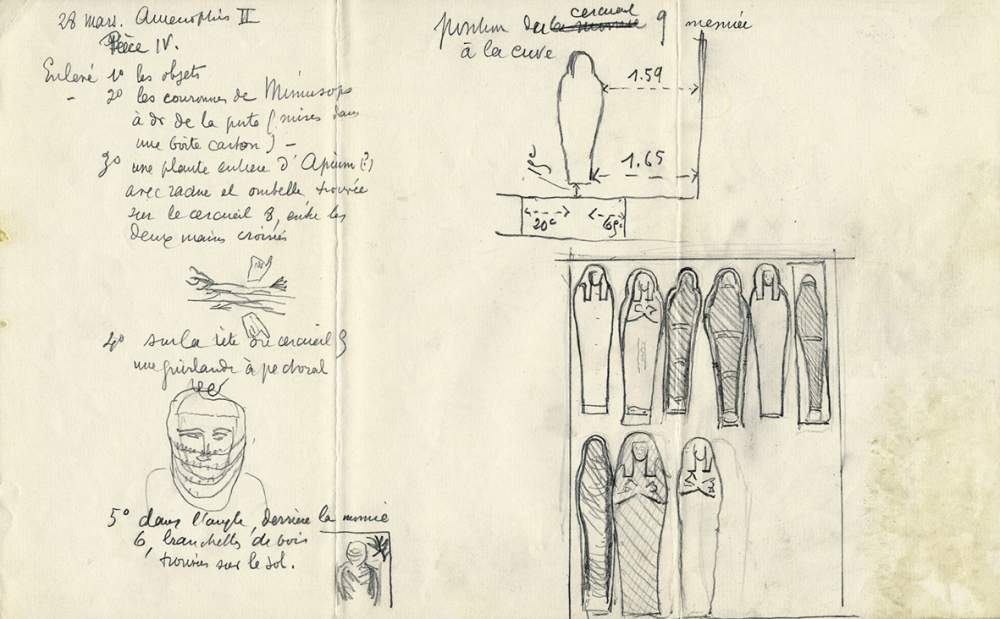 28 mars. Amenophis II
Pièce IV.
Enlevé 1º les objets
- 2º les couronnes de Mimusops
à dr de la porte (mises dans
une boîte carton) -
3º une plante entière d'Apium (?)
avec racine et ombelle trouvée
sur le cercueil 8, entre les
deux mains croisées
4º sur la tête du cercueil 9
une guirlande à pectoral
5º dans l'angle, derrière la momie
6, branchettes de bois
trouvées sur le sol.
cercueil
position de la momie 9
à la cuve
1.59
1.65
20c